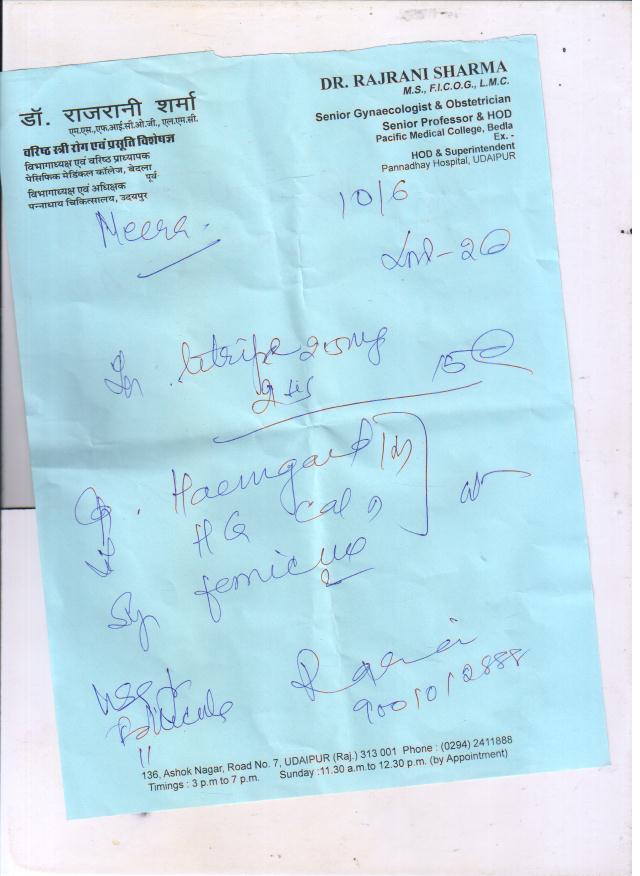 डॉ. राजरानी शर्मा
एम.एस.,एफ.आई.सी.ओ.जी., एल.एम.सी.
वरिष्ठ स्त्री रोग एवं प्रसूति विशेषज्ञ
विभागाध्यक्ष एवं वरिष्ठ प्राध्यापक
पेसिफिक मेडिकल कॉलेज, बेदला
पूर्व
विभागाध्यक्ष एवं अधिक्षक
पन्नाधाय चिकित्सालय, उदयपुर
DR. RAJRANI SHARMA
M.S., F.I.C.O.G., L.M.C.
Senior Gynaecologist & Obstetrician
Senior Professor & HOD
Pacific Medical College, Bedla
Ex. -
HOD & Superintendent
Pannadhay Hospital, UDAIPUR
10/6
Meera
Haemgard
HQ Cal
Sy
follicule
9001012888
136, Ashok Nagar, Road No. 7, UDAIPUR (Raj.) 313 001 Phone : (0294) 2411888
Timings : 3 p.m to 7 p.m. Sunday :11.30 a.m.to 12.30 p.m. (by Appointment)